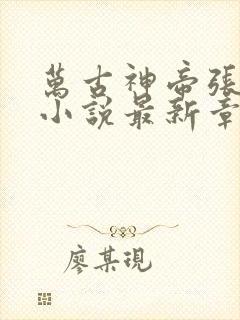 萬古神帝張
小說最新章
廖某現